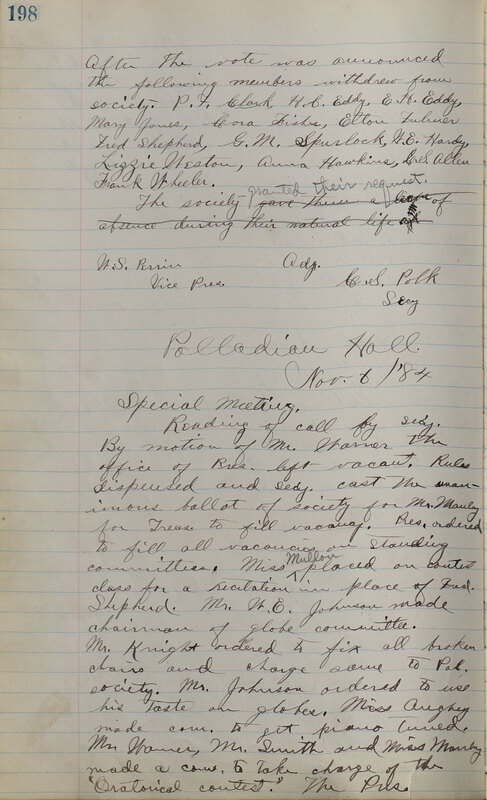 198
After the vote was announced
the following members withdrew from
society. P. F. Clark, H. C. Eddy, E. H. Eddy,
Mary Jones, Cora Fisher, Elton Fulmer
Fred Shepherd, G. M. Spurlock, W. E. Hardy,
Lizzie Weston, Anna Hawkins, Allen
Frank Wheeler.
granted their request.
The society gave them a leave of
absence during their natural life
W. S. Perrin Adj.
Vice Pres. C. S. Polk
Secy
Palladian Hall
Nov. 6/'84
Special Meeting.
Reading of call by secy.
By motion of Mr. Warner the
office of Pres. left vacant. Rules
dispensed and secy. cast the unan-
imous ballot of society for Mr. Manley
for Treas. to fill vacancy. Pres. ordered
to fill all vacancies on standing
committees. Miss Mullon placed on contest
class for a recitation in place of Fred.
Shepherd. Mr. W. C. Johnson made
chairman of globe committee.
Mr. Knight ordered to fix all broken
chairs and charge same to Pal.
society. Mr. Johnson ordered to use
his taste on globes. Miss Aughey
made com. to get piano tuned.
Mr. Warner, Mr. Smith and Miss Manley
made a com. to take charge of the
"Oratorical contest." The Pres.